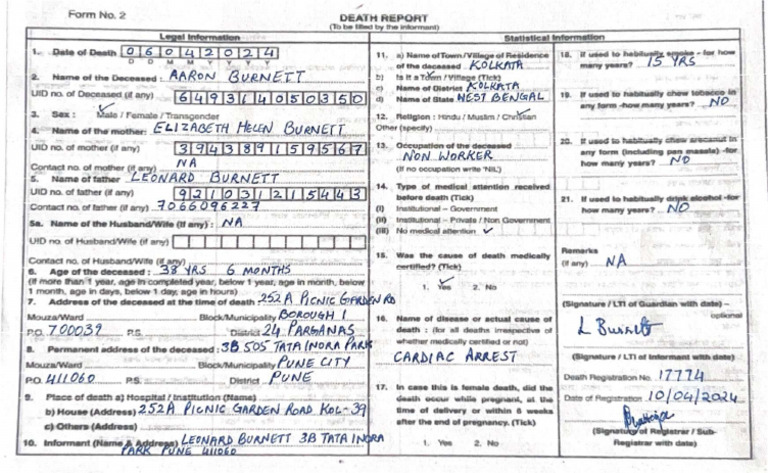 Form No. 2
DEATH REPORT
(To be filled by the informant)
Legal Information
1. Date of Death 06042024
D D M M Y Y Y Y
2. Name of the Deceased : AARON BURNETT
UID no. of Deceased (if any) 649314050350
3. Sex : Male / Female / Transgender
4. Name of the mother: ELIZABETH HELEN BURNETT
UID no. of mother (if any) 394389159567
Contact no. of mother (if any) NA
5. Name of father LEONARD BURNETT
UID no. of father (if any) 921031215443
Contact no. of father (if any) 7066096227
5a. Name of the Husband/Wife (if any) : NA
UID no. of Husband/Wife (if any)
Contact no. of Husband/Wife (if any)
6. Age of the deceased : 38 YRS 6 MONTHS
(If more than 1 year, age in completed year, below 1 year, age in month, below
1 month, age in days, below 1 day, age in hours)
7. Address of the deceased at the time of death 252A PICNIC GARDEN RD
Mouza/Ward Block/Municipality BOROUGH I
P.O. 700039 P.S. District 24 PARGANAS
8. Permanent address of the deceased : 3B 505 TATA INORA PARK
Mouza/Ward Block/Municipality PUNE CITY
P.O. 411060 P.S. District PUNE
9. Place of death a) Hospital / Institution (Name)
b) House (Address) 252A PICNIC GARDEN ROAD KOL-39
c) Others (Address)
10. Informant (Name & Address) LEONARD BURNETT 3B TATA INORA
PARK PUNE 411060
Statistical Information
11. a) Name of Town/Village of Residence
of the deceased KOLKATA
b) Is it a Town / Village (Tick)
c) Name of District KOLKATA
d) Name of State WEST BENGAL
12. Religion : Hindu / Muslim / Christian
Other (specify)
13. Occupation of the deceased
NON WORKER
(If no occupation write 'NIL')
14. Type of medical attention received
before death (Tick)
(i) Institutional - Government
(ii) Institutional - Private / Non Government
(iii) No medical attention ✓
15. Was the cause of death medically
certified? (Tick)
1. Yes 2. No
16. Name of disease or actual cause of
death : (for all deaths irrespective of
whether medically certified or not)
CARDIAC ARREST
17. In case this is female death, did the
death occur while pregnant, at the
time of delivery or within 6 weeks
after the end of pregnancy. (Tick)
1. Yes 2. No
18. If used to habitually smoke - for how
many years? 15 YRS
19. If used to habitually chew tobacco in
any form -how many years? NO
20. If used to habitually chew arecanut in
any form (including pan masala) -for
how many years? NO
21. If used to habitually drink alcohol -for
how many years? NO
Remarks
(if any) NA
(Signature / LTI of Guardian with date) –
optional
L Burnett
(Signature / LTI of Informant with date)
Death Registration No. 17774
Date of Registration 10/04/2024
(Signature of Registrar / Sub-
Registrar with date)